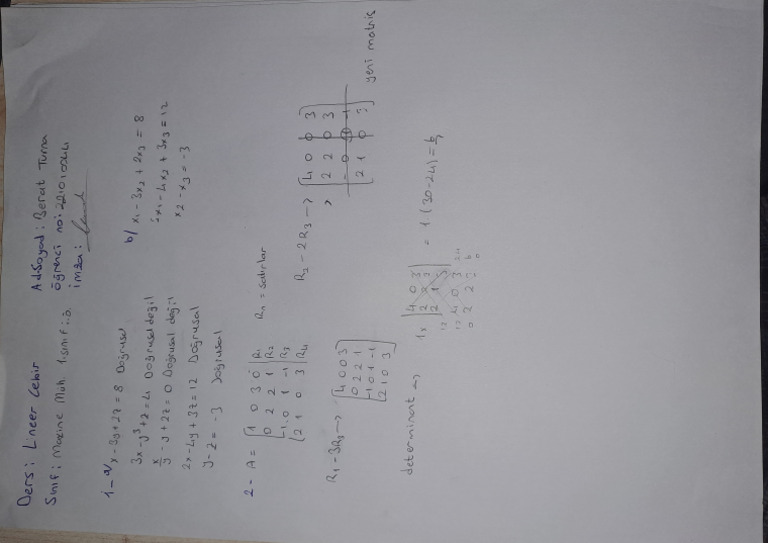 Ders: Lineer Cebir
Sınıf: Makine Müh. 1.sınıf i.ö
Ad-Soyad: Berat Tuma
öğrenci no:
imza:
1-a/ x-3y+2z=8 Doğrusal
3x-y³+z=4 Doğrusal değil
x/y -y+2z=0 Doğrusal değil
2x-4y+3z=12 Doğrusal
y-z=-3 Doğrusal
b/ x1-3x2+2x3=8
5x1-4x2+3x3=12
x2-x3=-3
2- A= [1 0 3 0 R1
0 2 2 1 R2
-1 0 1 -1 R3
2 1 0 3] R4
Rn = satırlar
R1-3R3 → [4 0 0 3
0 2 2 1
-1 0 1 -1
2 1 0 3]
R2-2R3 → [4 0 0 3
2 2 0 3
- 0 -1
2 1 0 3] yeni matris
determinat → 1x |4 0 3
2 2 3
2 1 3| = 1(30-24)=6
4 0 3
2 2 3